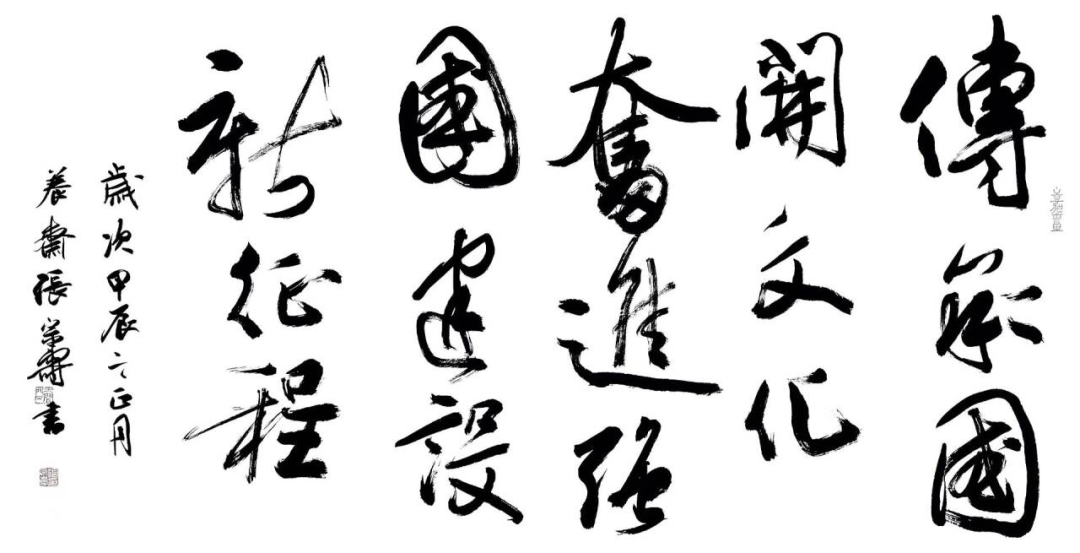 傳承國
開文化
奮進強
國建設
新征程
歲次甲辰之正月
養齋張壽書